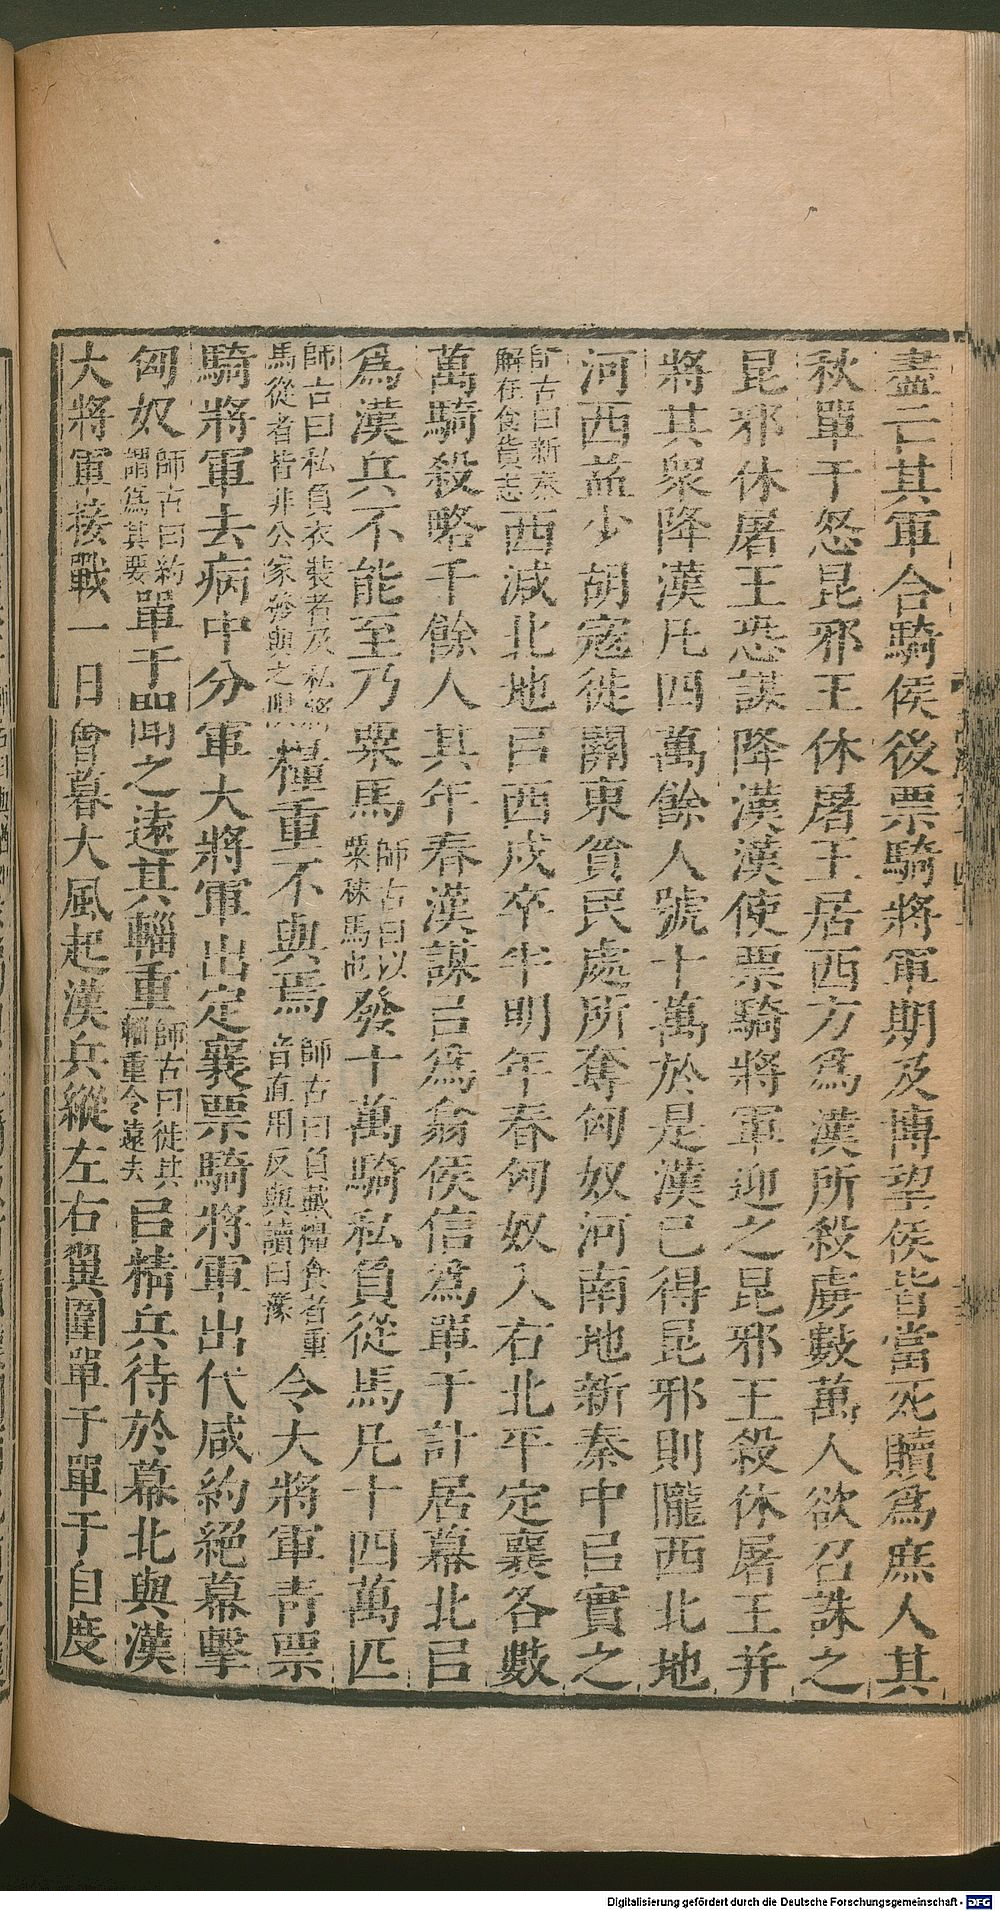 盡亡其軍合騎侯後票騎將軍期及博望侯皆當死贖爲庶人其
秋單于怒昆邪王休屠王居西方爲漢所殺虜數萬人欲召誅之
昆邪休屠王恐謀降漢漢使票騎將軍迎之昆邪王殺休屠王并
將其衆降漢凡四萬餘人號十萬於是漢已得昆邪則隴西北地
河西益少胡寇徙關東貧民處所奪匈奴河南地新秦中㠯實之
師古曰新秦解在食貨志西減北地㠯西戍卒半明年春匈奴入右北平定襄各數
萬騎殺略千餘人其年春漢謀㠯爲翕侯信爲單于計居幕北㠯
爲漢兵不能至乃粟馬師古曰以粟秣馬也發十萬騎私負從馬凡十四萬匹
師古曰私負衣裝者及私將馬從者皆非公家發與之限糧重不與焉師古曰負戴糧食者重音直用反與讀曰豫令大將軍靑票
騎將軍去病中分軍大將軍出定襄票騎將軍出代咸約絕幕擊
匈奴師古曰約謂爲其要單于聞之遠其輜重師古曰徙其輜重令遠去㠯精兵待於幕北與漢
大將軍接戰一日會暮大風起漢兵縱左右翼圍單于單于自度
Digitalisierung gefördert durch die Deutsche Forschungsgemeinschaft - DFG